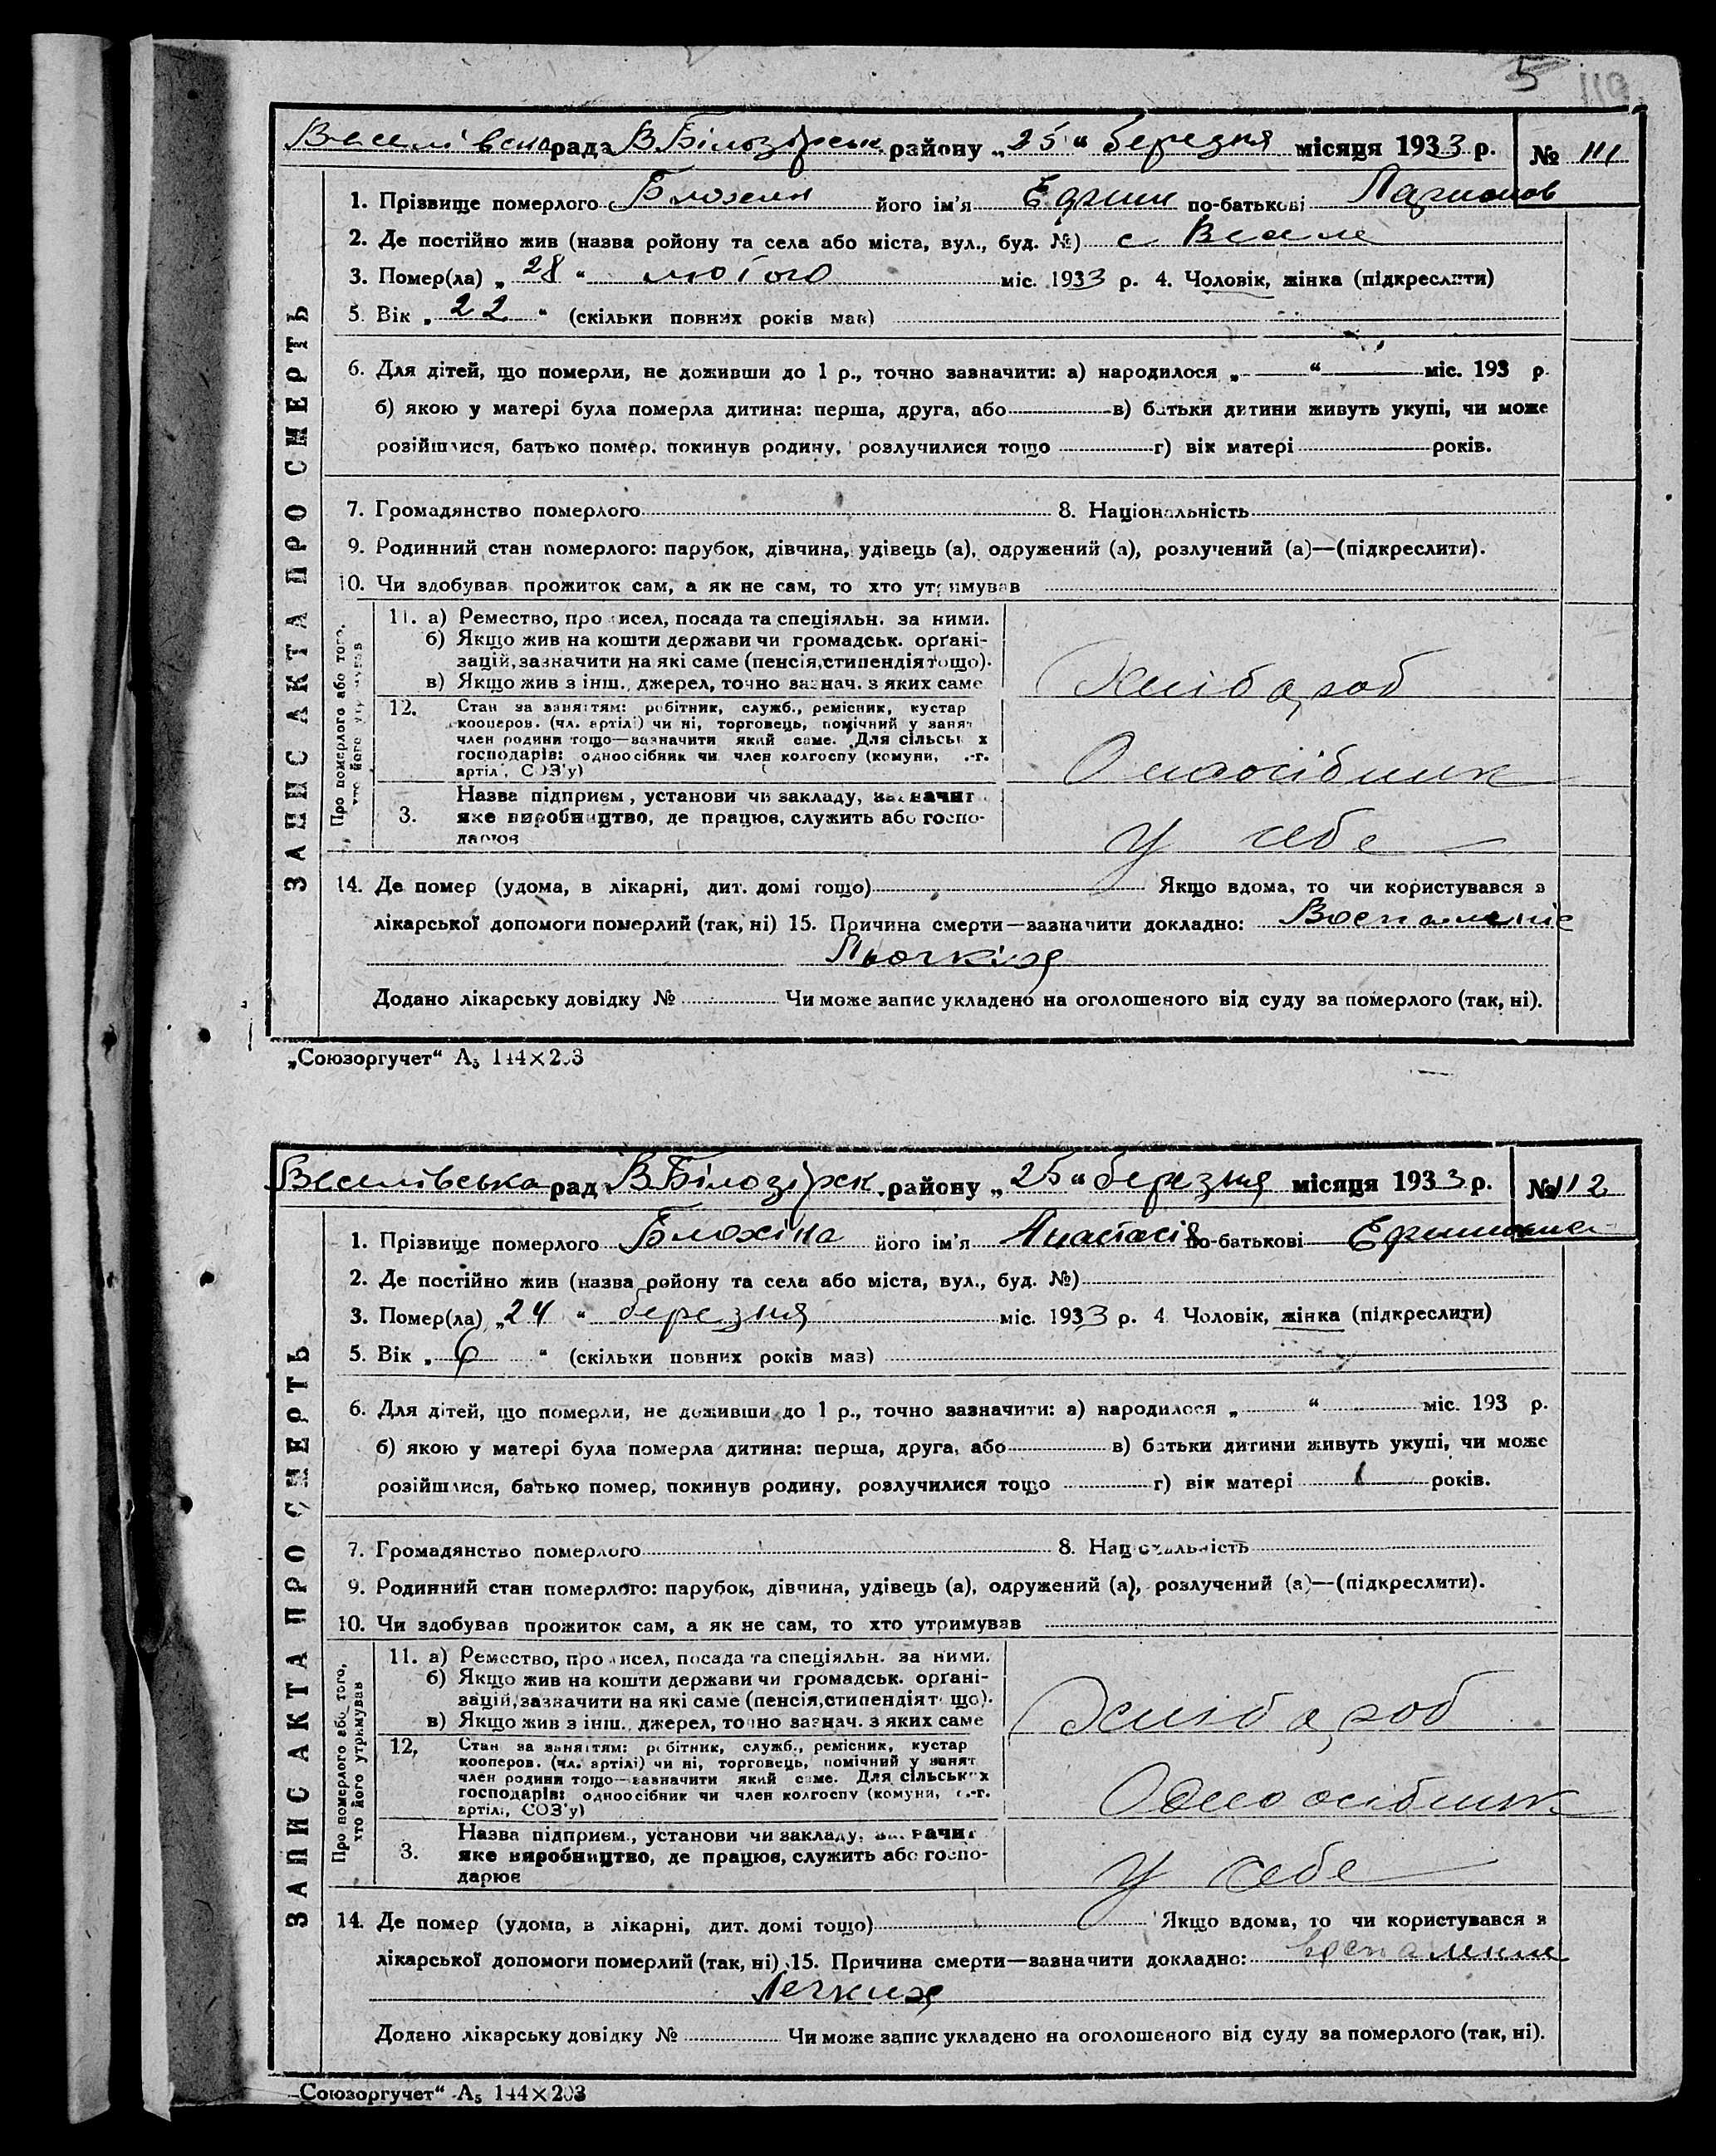 5 119
Веселівська рада В Білозірськ. району „25“ березня місяця 1933 р. № 111
1. Прізвище померлого Блохин його ім'я Ефим по-батькові Ларионов
2. Де постійно жив (назва ройону та села або міста, вул., буд. №) с
3. Помер(ла) „28“ лютого міс. 1933 р. 4. Чоловік, жінка (підкреслити)
5. Вік „22“ (скільки повних років мав)
6. Для дітей, що померли, не доживши до 1 р., точно зазначити: а) народилося „ “ міс. 193 р.
б) якою у матері була померла дитина: перша, друга, або в) батьки дитини живуть укупі, чи може
розійшлися, батько помер, покинув родину, розлучилися тощо г) вік матері років.
7. Громадянство померлого 8. Національність
9. Родинний стан померлого: парубок, дівчина, удівець (а), одружений (а), розлучений (а)—(підкреслити).
10. Чи здобував прожиток сам, а як не сам, то хто утримував
ЗАПИС АКТА ПРО СМЕРТЬ
Про померлого або того,
хто його утримував
11. а) Ремество, про исел, посада та спеціяльн. за ними.
б) Якщо жив на кошти держави чи громадськ. орґані-
зацій, зазначити на які саме (пенсія, стипендія тощо).
в) Якщо жив з інш., джерел, точно зазнач. з яких саме
Хлібороб
12. Стан за заняттям: робітник, служб., ремісник, кустар
кооперов. (чл. артілі) чи ні, торговець, помічний у занят
член родини тощо—зазначити який саме. Для сільських
господарів: одноосібник чи член колгоспу (комуни, .-г.
артіл., СОЗ'у)
Одноосібник
3. Назва підприєм., установи чи закладу, зазначит
яке виробництво, де працює, служить або госпо-
дарює
У себе
14. Де помер (удома, в лікарні, дит. домі тощо) Якщо вдома, то чи користувався з
лікарської допомоги померлий (так, ні) 15. Причина смерти—зазначити докладно: Воспаленіє
Льогкіх
Додано лікарську довідку № Чи може запис укладено на оголошеного від суду за померлого (так, ні).
„Союзоргучет“ А5 144×203
Веселівська рад В Білозірск. району „25“ березня місяця 1933 р. № 112
1. Прізвище померлого Блохіна його ім'я Анастасія по-батькові Ефимовна
2. Де постійно жив (назва району та села або міста, вул., буд. №)
3. Помер(ла) „24“ березня міс. 1933 р. 4 Чоловік, жінка (підкреслити)
5. Вік „6“ (скільки повних років маз)
6. Для дітей, що померли, не доживши до 1 р., точно зазначити: а) народилося „ “ міс. 193 р.
б) якою у матері була померла дитина: перша, друга, або в) батьки дитини живуть укупі, чи може
розійшлися, батько помер, покинув родину, розлучилися тощо г) вік матері років.
7. Громадянство померлого 8. Національність
9. Родинний стан померлого: парубок, дівчина, удівець (а), одружений (а), розлучений (а)—(підкреслити).
10. Чи здобував прожиток сам, а як не сам, то хто утримував
ЗАПИС АКТА ПРО СМЕРТЬ
Про померлого або того,
хто його утримував
11. а) Ремество, про исел, посада та спеціяльн. за ними.
б) Якщо жив на кошти держави чи громадськ. орґані-
зацій, зазначити на які саме (пенсія, стипендія т щю).
в) Якщо жив з інш., джерел, точно зазнач. з яких саме
Хлібороб
12. Стан за заняттям: робітник, служб., ремісник, кустар
кооперов. (чл. артілі) чи ні, торговець, помічний у занят
член родини тощо—зазначити який саме. Для сільських
господарів: одноосібник чи член колгоспу (комуни, с.-г.
артілі, СОЗ'у)
Одноосібник
3. Назва підприєм., установи чи закладу, зазначит
яке виробництво, де працює, служить або госпо-
дарює
У себе
14. Де помер (удома, в лікарні, дит. домі тощо) Якщо вдома, то чи користувався з
лікарської допомоги померлий (так, ні) 15. Причина смерти—зазначити докладно: Воспаление
Легких
Додано лікарську довідку № Чи може запис укладено на оголошеного від суду за померлого (так, ні).
Союзоргучет“ А5 144×203